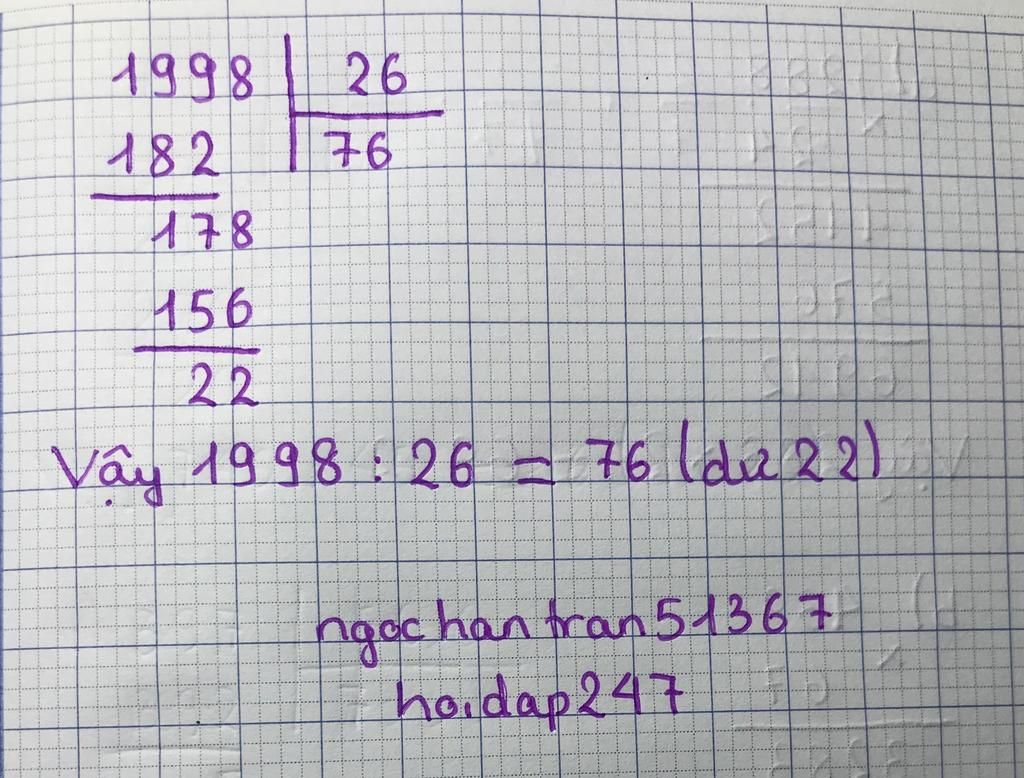 1998 26
182 76
178
156
22
Vậy 1998 : 26 = 76 (dư 22)
ngochantran51367
hoidap247